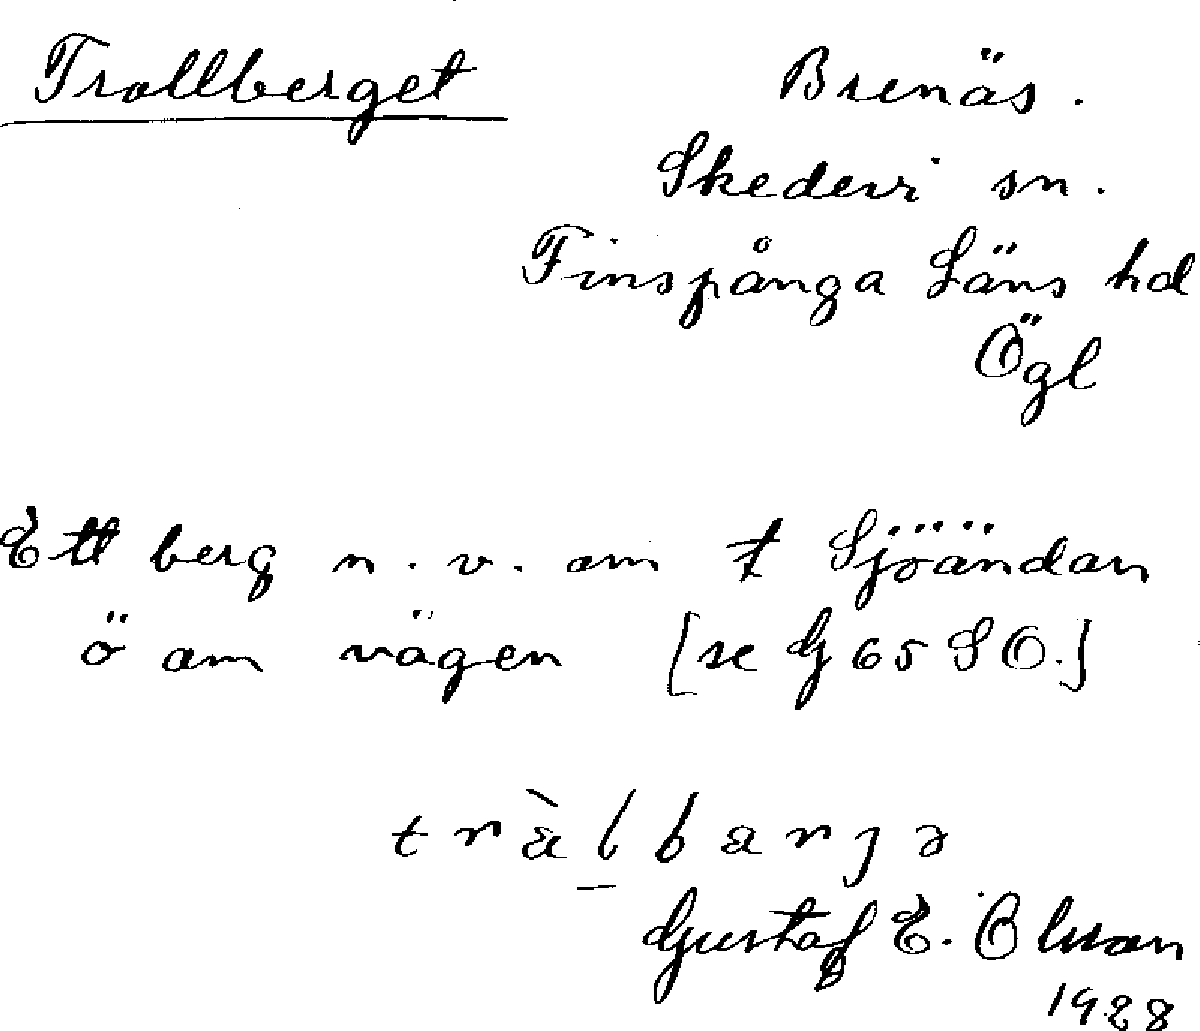 Trollberget
Brenäs.
Skedevi sn.
Finspånga Läns hd
Ögl
Ett berg n. v. om t Sjöändan
ö om vägen [se G 65 SO.]
Gustaf E. Olsson
1928